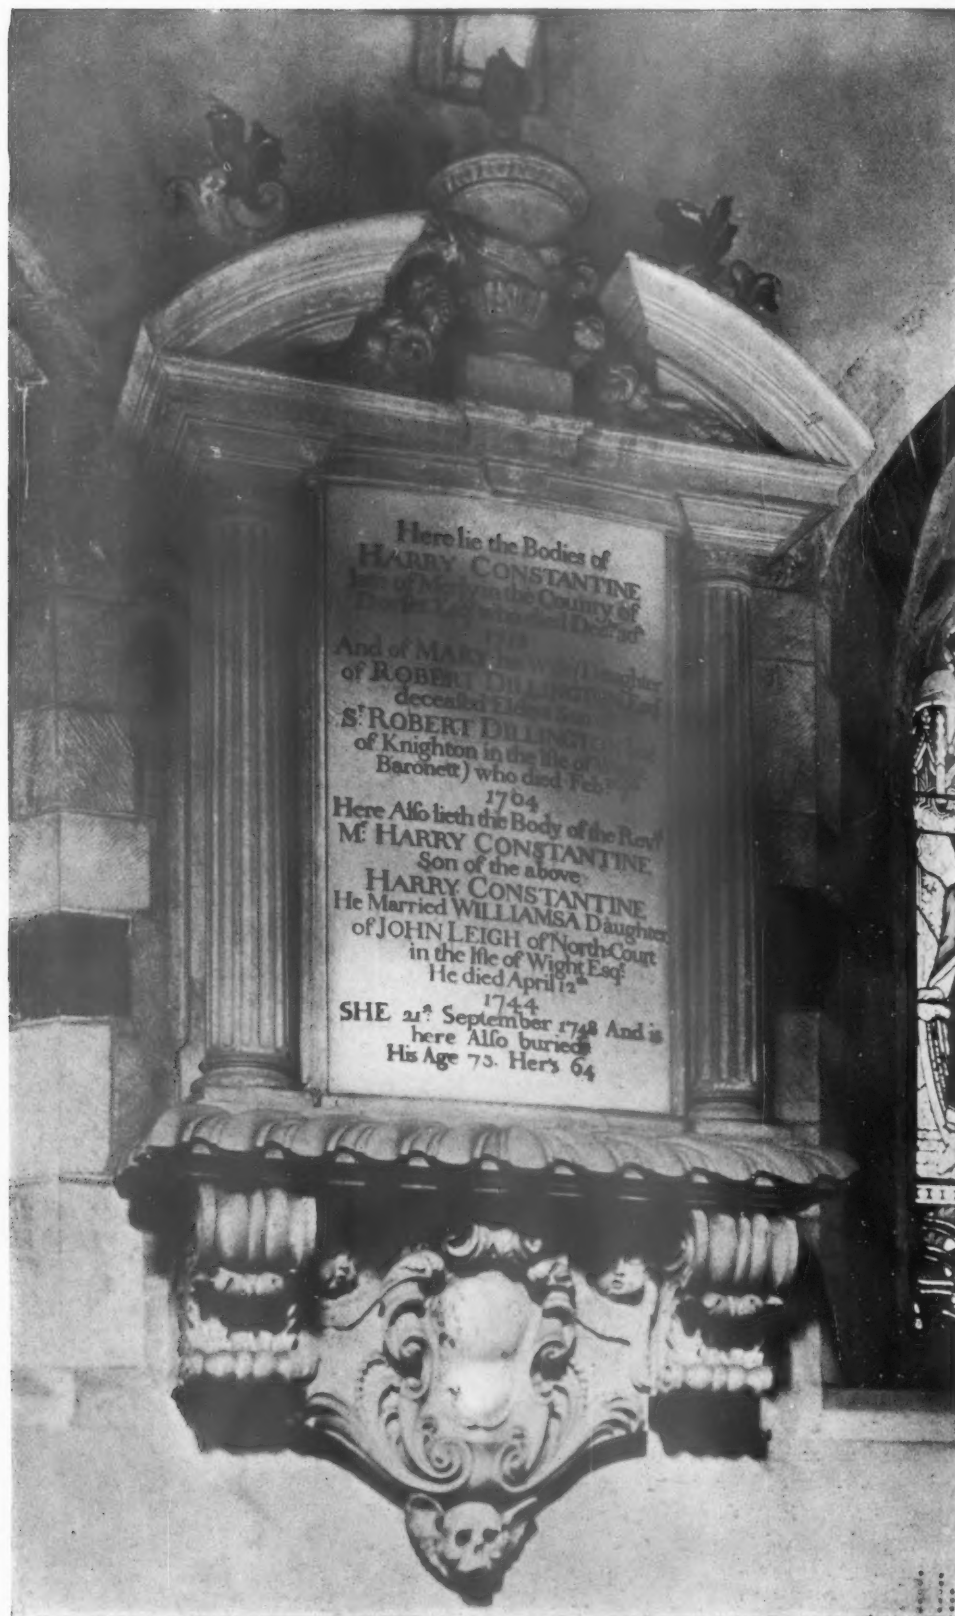 Here lie the Bodies of
HARRY CONSTANTINE
late of in the County of
who died
And of MARY his Wife (Daughter
of ROBERT DILLINGTON Esqr
deceased Eldest Son
Sr. ROBERT DILLINGTON
of Knighton in the Isle of
Baronett) who died Feb
1704
Here Also lieth the Body of the Revd
Mr. HARRY CONSTANTINE
Son of the above
HARRY CONSTANTINE
He Married WILLIAMSA Daughter
of JOHN LEIGH of North-Court
in the Isle of Wight Esqr.
He died April 12th
1744
SHE 21st. September 1748 And is
here Also buried
His Age 73. Her's 64